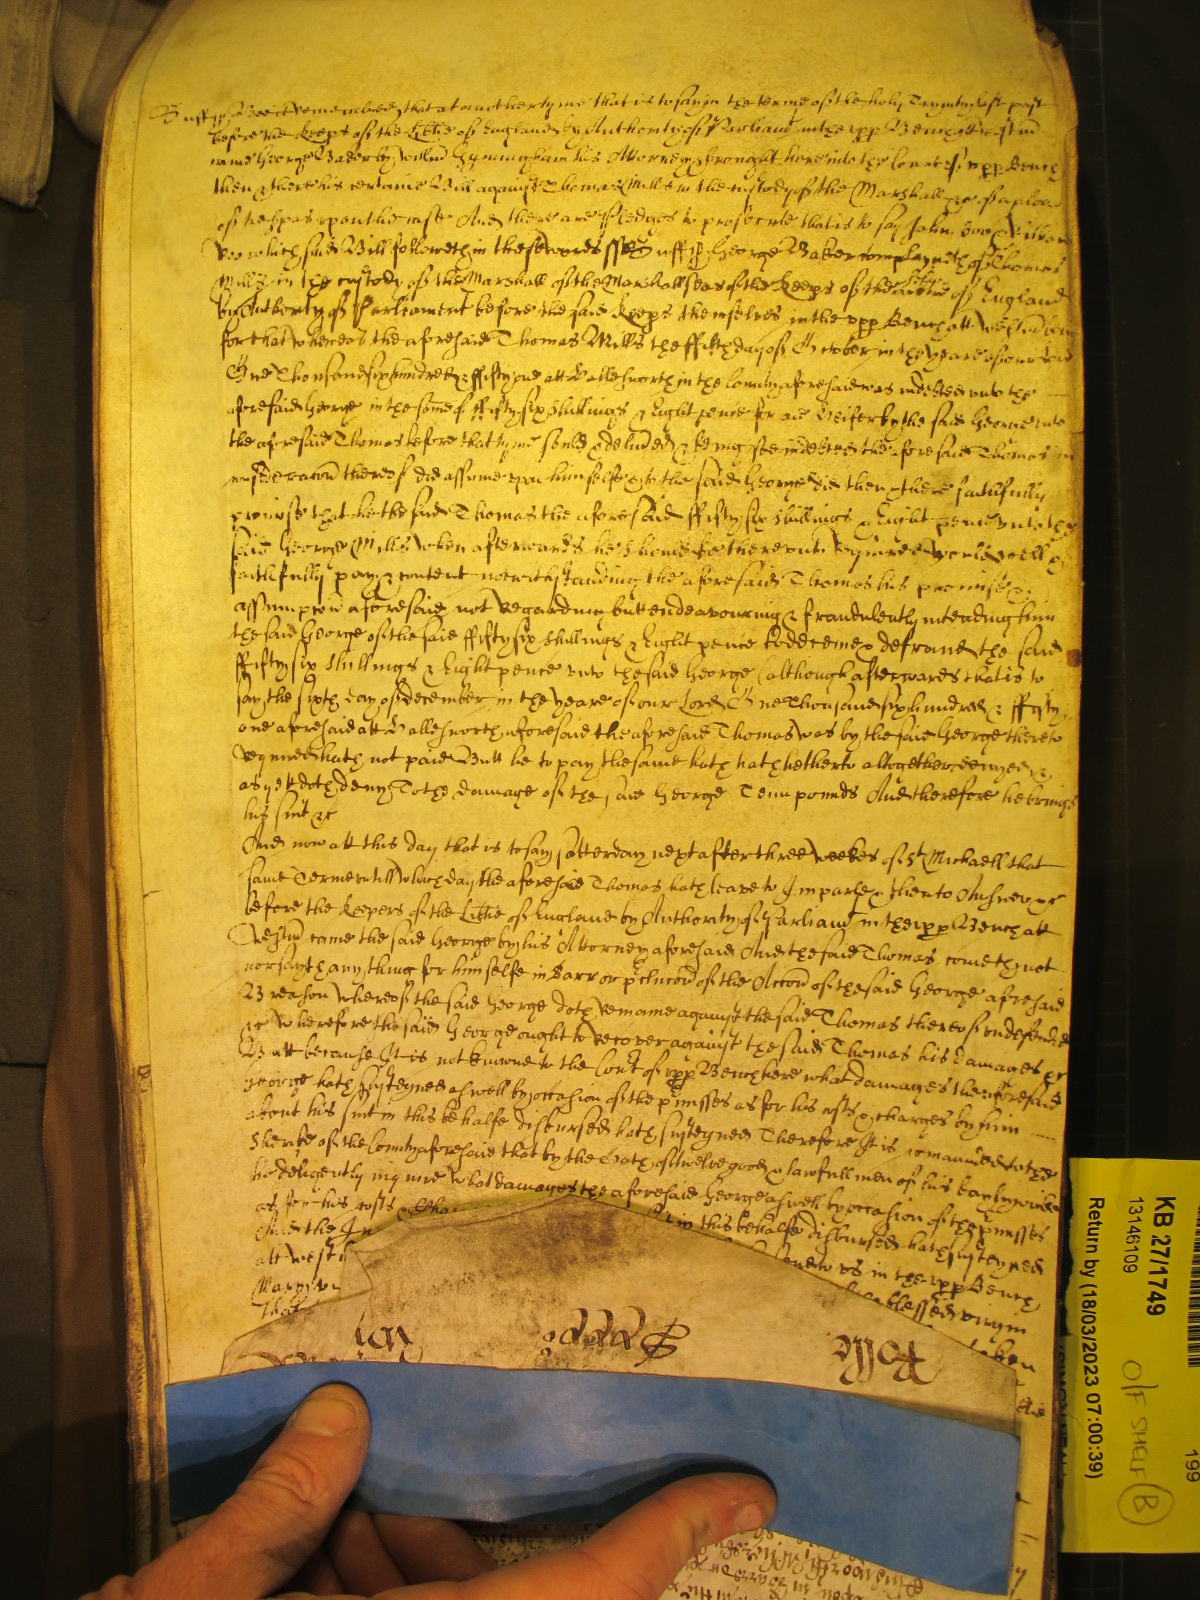 Suff ss Bee it remembred that at another tyme that is to say in the terme of the holy Trynity last past
before the keeps of the Libtie of England by Authority of Parliamt in the upp Bench att Westm
came George Baker by Willm his Attorney & brought here into the Court of upp Bench
then & there his certaine Bill against Thomas Mills in the custody of the Marshall &c of a plea
of trespas upon the case And there are pledges to prosecute that is to say John Doo & Richard
Roo which said Bill followeth in these words ss Suff ss George Baker complayneth of Thomas
Mills in the custody of the Marshall of the Marshallseas of the keeps of the Libtie of England
by Authority of Parliament before the said keeps themselves in the upp Bench att Westm being
for that whereas the aforesaid Thomas Mills the ffifth day of October in the yeare of our Lord
One Thousand six hundred & ffifty one att Hallesworth in the County aforesaid was indebted unto the
aforesaid George in the some of ffifty six shillings & Eight pence for one Heifer by the said George unto
the aforesaid Thomas before that tyme sould & delivered & being soe indebted the aforesaid Thomas in
consideracon thereof did assume upon himselfe & to the said George did then & there faithfully
promise that he the said Thomas the aforesaid ffifty six shillings & Eight pence unto the
said George Mills when afterwards he should be thereunto required would well &
faithfully pay & content notwithstanding the aforesaid Thomas his promise &
assumption aforesaid not regarding but endeavouring & fraudulently intending him
the said George of the said ffifty six shillings & Eight pence to deceive & defraud the said
ffifty six shillings & Eight pence unto the said George (although afterwards that is to
say the sixth day of December in the yeare of our Lord One Thousand six hundred & ffifty
one aforesaid att Hallesworth aforesaid the aforesaid Thomas was by the said George thereto
required hath not paid Butt he to pay the same hath hetherto altogether denyed &
as yett doth deny To the damage of the said George Tenn pounds And therefore he brings
his suit &c
And now att this day that is to say Satterday next after three weekes of St Michaell that
same Terme untill which day the aforesaid Thomas hath leave to Imparle & then to Answer &c
before the keepers of the Libtie of England by Authority of Parliamt in the upp Bench att
Westm came the said George by his Attorney aforesaid And the said Thomas cometh not
nor sayth any thing for himselfe in barr or pclucon of the Accon of the said George aforesaid
By reason whereof the said George doth remaine against the said Thomas thereof undefended
&c Wherefore the said George ought to recover against the said Thomas his damages &c
Butt because It is not knowne to the Court of upp Bench here what damages the aforesaid
George hath susteyned aswell by occasion of the pmisses as for his costs & charges by him
about his suit in this behalfe disbursed hath susteyned Therefore It is comanded to the
Sherife of the County aforesaid that by the Oath of twelve good & lawfull men of his baylywicke
he deligently inquire what damages the aforesaid George aswell by occasion of the pmisses
as for his costs & Char in this behalfe disbursed hath susteyned
And the In to us in the upp Bench
att Westm blessed virgin
Mary taken
KB 27/1749
13146109
Return by (18/03/2023 07:00:39)
O/F SHELF B
199